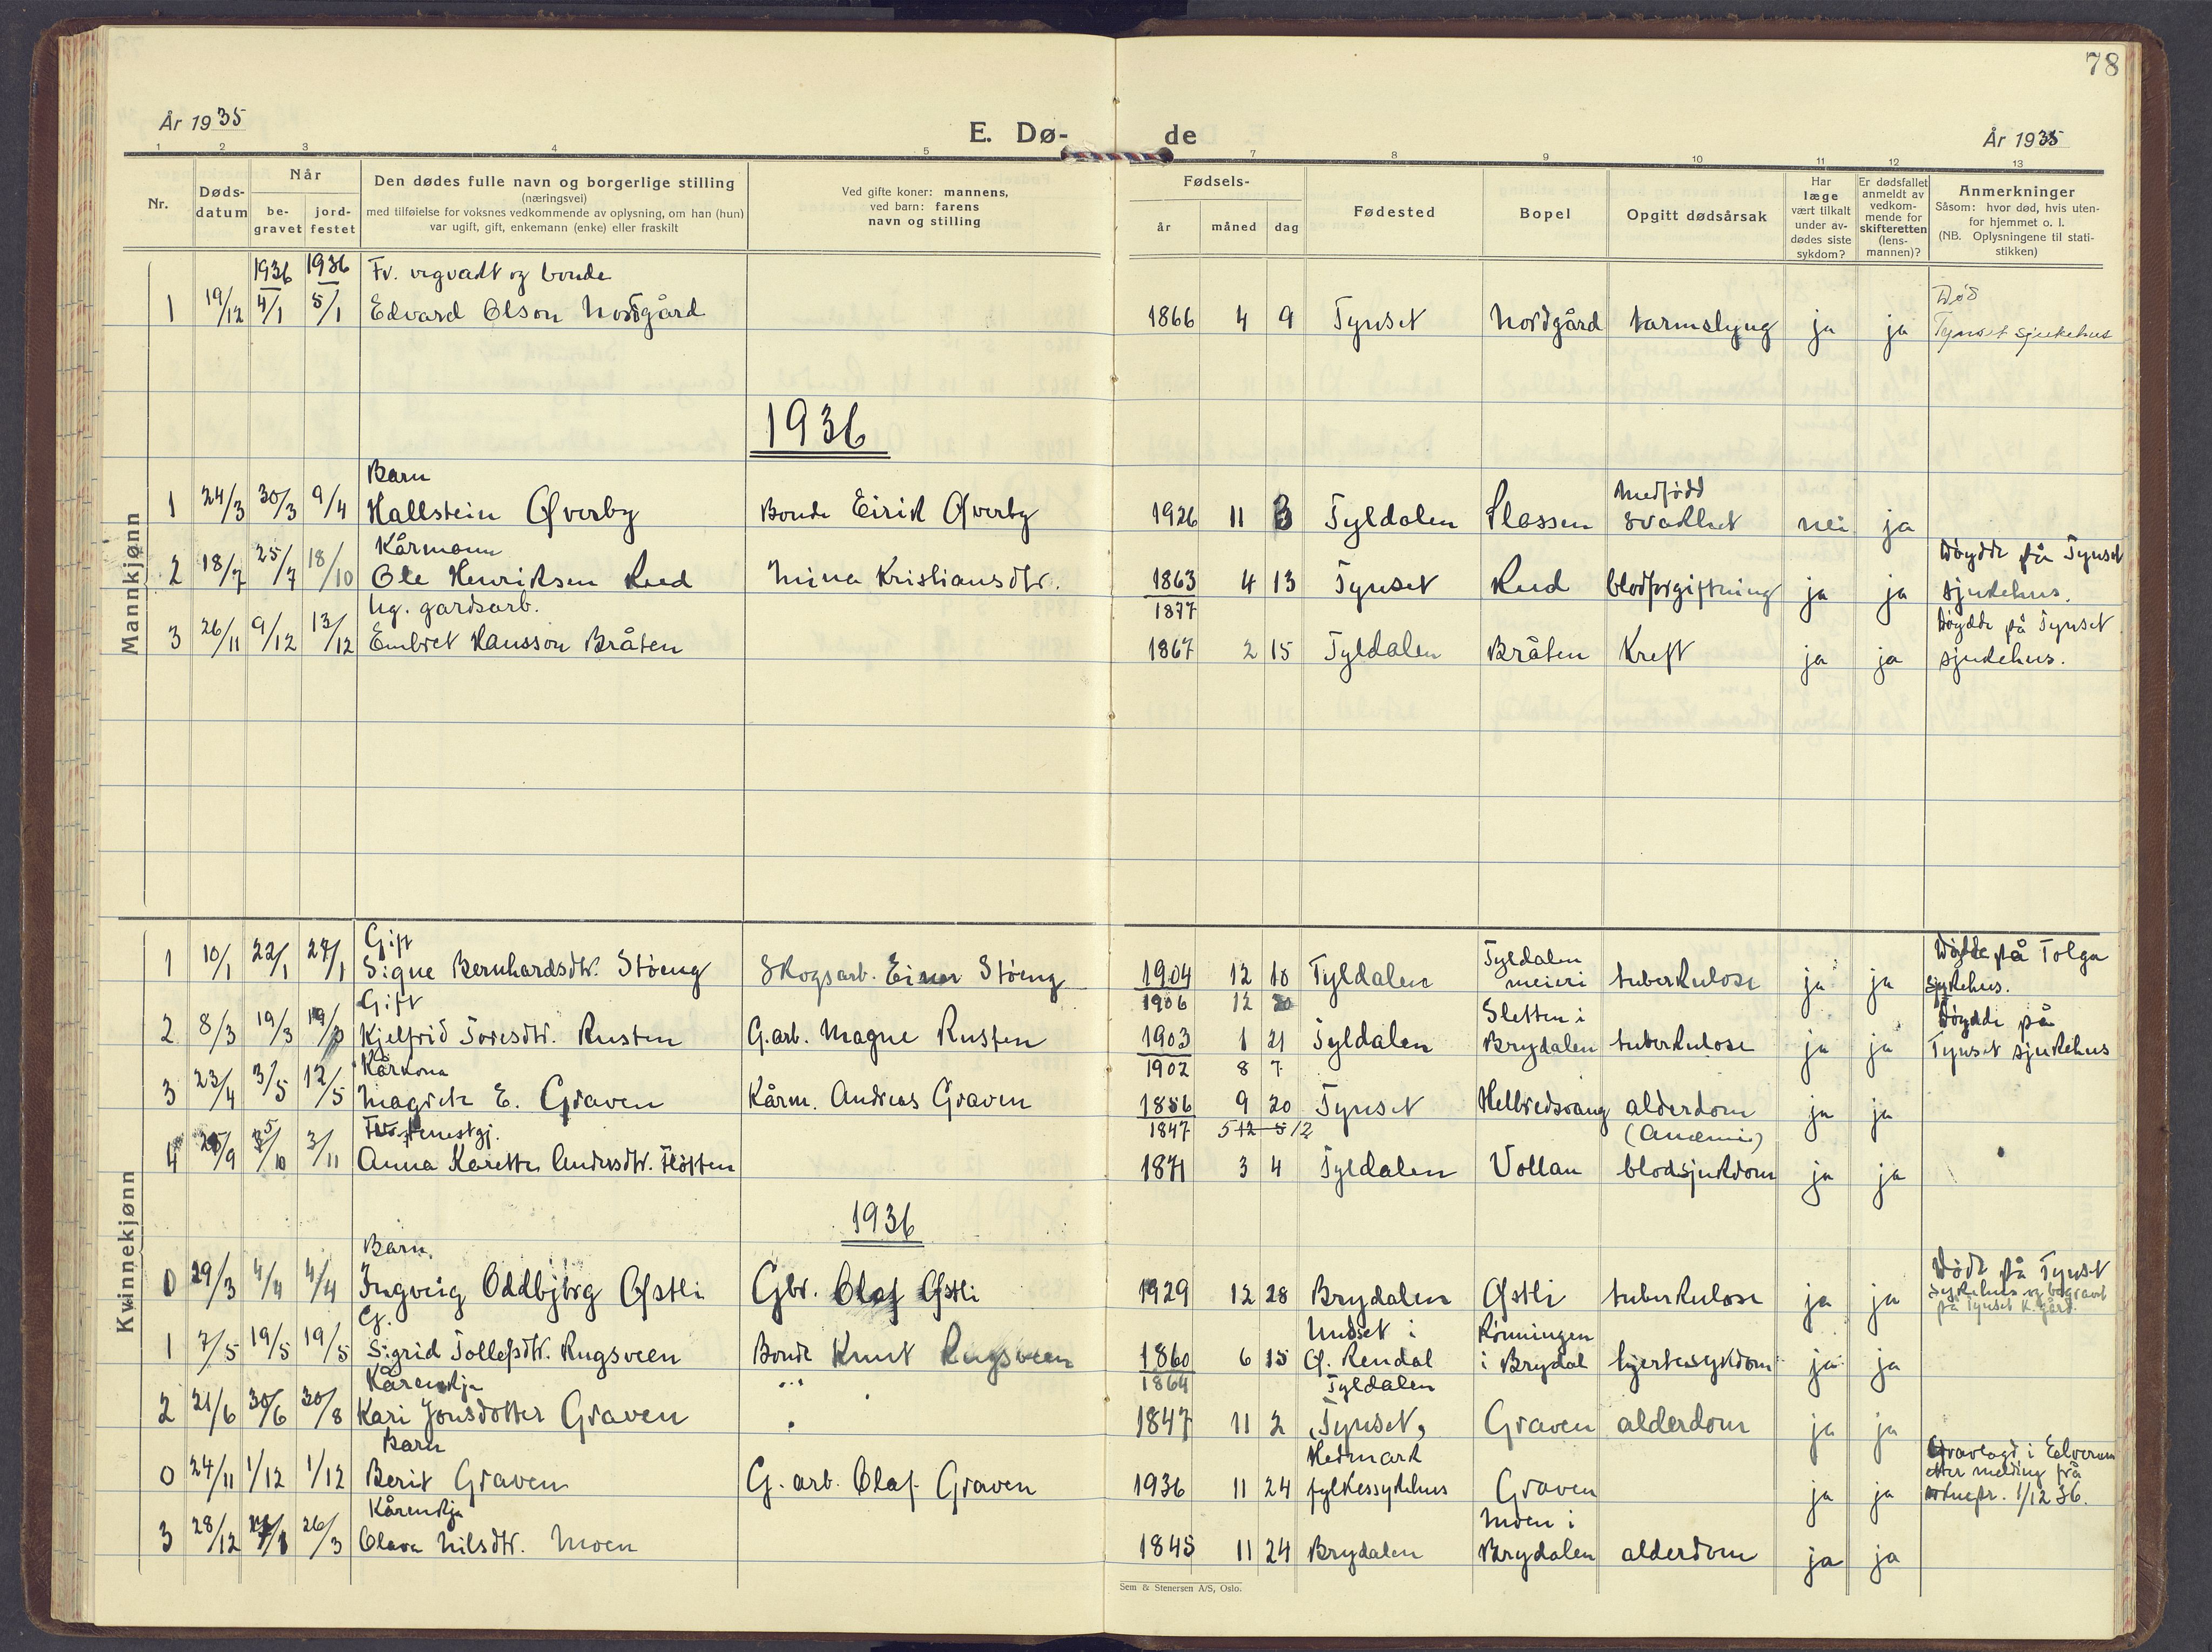 78
År 1935
E. Dø-
de
År 1935
1 2 3 4 5 7 8 9 10 11 12 13
Nr.
Døds-
datum
Når
be-
gravet
jord-
festet
Den dødes fulle navn og borgerlige stilling
(næringsvei)
med tilføielse for voksnes vedkommende av oplysning, om han (hun)
var ugift, gift, enkemann (enke) eller fraskilt
Ved gifte koner: mannens,
ved barn: farens
navn og stilling
Fødsels-
år måned dag
Fødested
Bopel
Opgitt dødsårsak
Har
læge
vært tilkalt
under av-
dødes siste
sykdom?
Er dødsfallet
anmeldt av
vedkom-
mende for
skifteretten
(lens-
mannen)?
Anmerkninger
Såsom: hvor død, hvis uten-
for hjemmet o. l.
(NB. Oplysningene til stati-
stikken)
Mannkjønn
1936 1936 Fv. vegvakt og bonde
Død
1 19/12 4/1 5/1 Edvard Olson Nordgård 1866 4 9 Tynset Nordgård tarmslyng ja ja Tynset sjukehus
1936
Barn
medfødd
1 24/3 30/3 9/4 Hallstein Øverby Bonde Eirik Øverby 1926 11 3 Tyldalen Plassen svakhet nei ja
Kårmann
Døydde på Tynset
2 18/7 25/7 18/10 Ole Henriksen Rud Mina Kristiansdtr. 1863 4 13 Tynset Rud blodforgiftning ja ja sjukehus.
1877
Ug. gardsarb.
Døydde på Tynset
3 26/11 9/12 13/12 Embret Hansson Bråten 1867 2 15 Tyldalen Bråten Kreft ja ja sjukehus.
Kvinnekjønn
Gift
Tyldalen
Døydde på Tolga
1 10/1 22/1 27/1 Signe Bernhardsdtr. Støeng Skogsarb. Einar Støeng 1904 12 10 Tyldalen meieri tuberkulose ja ja sjukehus.
1906 12
Gift
Sletten i
Døydde på
2 8/3 19/3 19/3 Kjelfrid Toresdtr. Rusten G.arb. Magne Rusten 1903 1 21 Tyldalen Brydalen tuberkulose ja ja Tynset sjukehus
1902 8 7
Kårkona
3 23/4 3/5 12/5 Magrete E. Graven Kårm. Andreas Graven 1856 9 20 Tynset Hellvedsvang alderdom ja ja
1847 5 12
(Anæmie)
4 25/9 /10 3/11 Anna Karette Andersdtr. Fløtten 1871 3 4 Tyldalen Vollan blodsjukdom ja ja
1936
Barn.
Døde på Tynset
0 29/3 4/4 4/4 Ingveig Oddbjørg Østli Gbr. Olaf Østli 1929 12 28 Brydalen Østli tuberkulose ja ja sjukehus og begravet
på Tynset K.gård.
G.
Undset i
Rønningen
1 7/5 19/5 19/5 Sigrid Tollefsdtr. Rugsveen Bonde Knut Rugsveen 1860 6 15 Ø. Rendal i Brydal hjertesykdom ja ja
1864
Kårenkja
Tyldalen
2 21/6 30/6 30/8 Kari Jonsdotter Graven 1847 11 2 Tynset, Graven alderdom ja ja
Barn
Hedmark
Gravlagt i Elverum
0 24/11 1/12 1/12 Berit Graven G. arb. Olaf Graven 1936 11 24 fylkessykehus Graven ja ja etter melding frå
soknepr. 1/12 36.
Kårenkja
Moen i
3 28/12 26/3 Olava Nilsdtr. Moen 1845 11 24 Brydalen Brydalen alderdom ja ja
Sem & Stenersen A/S, Oslo.